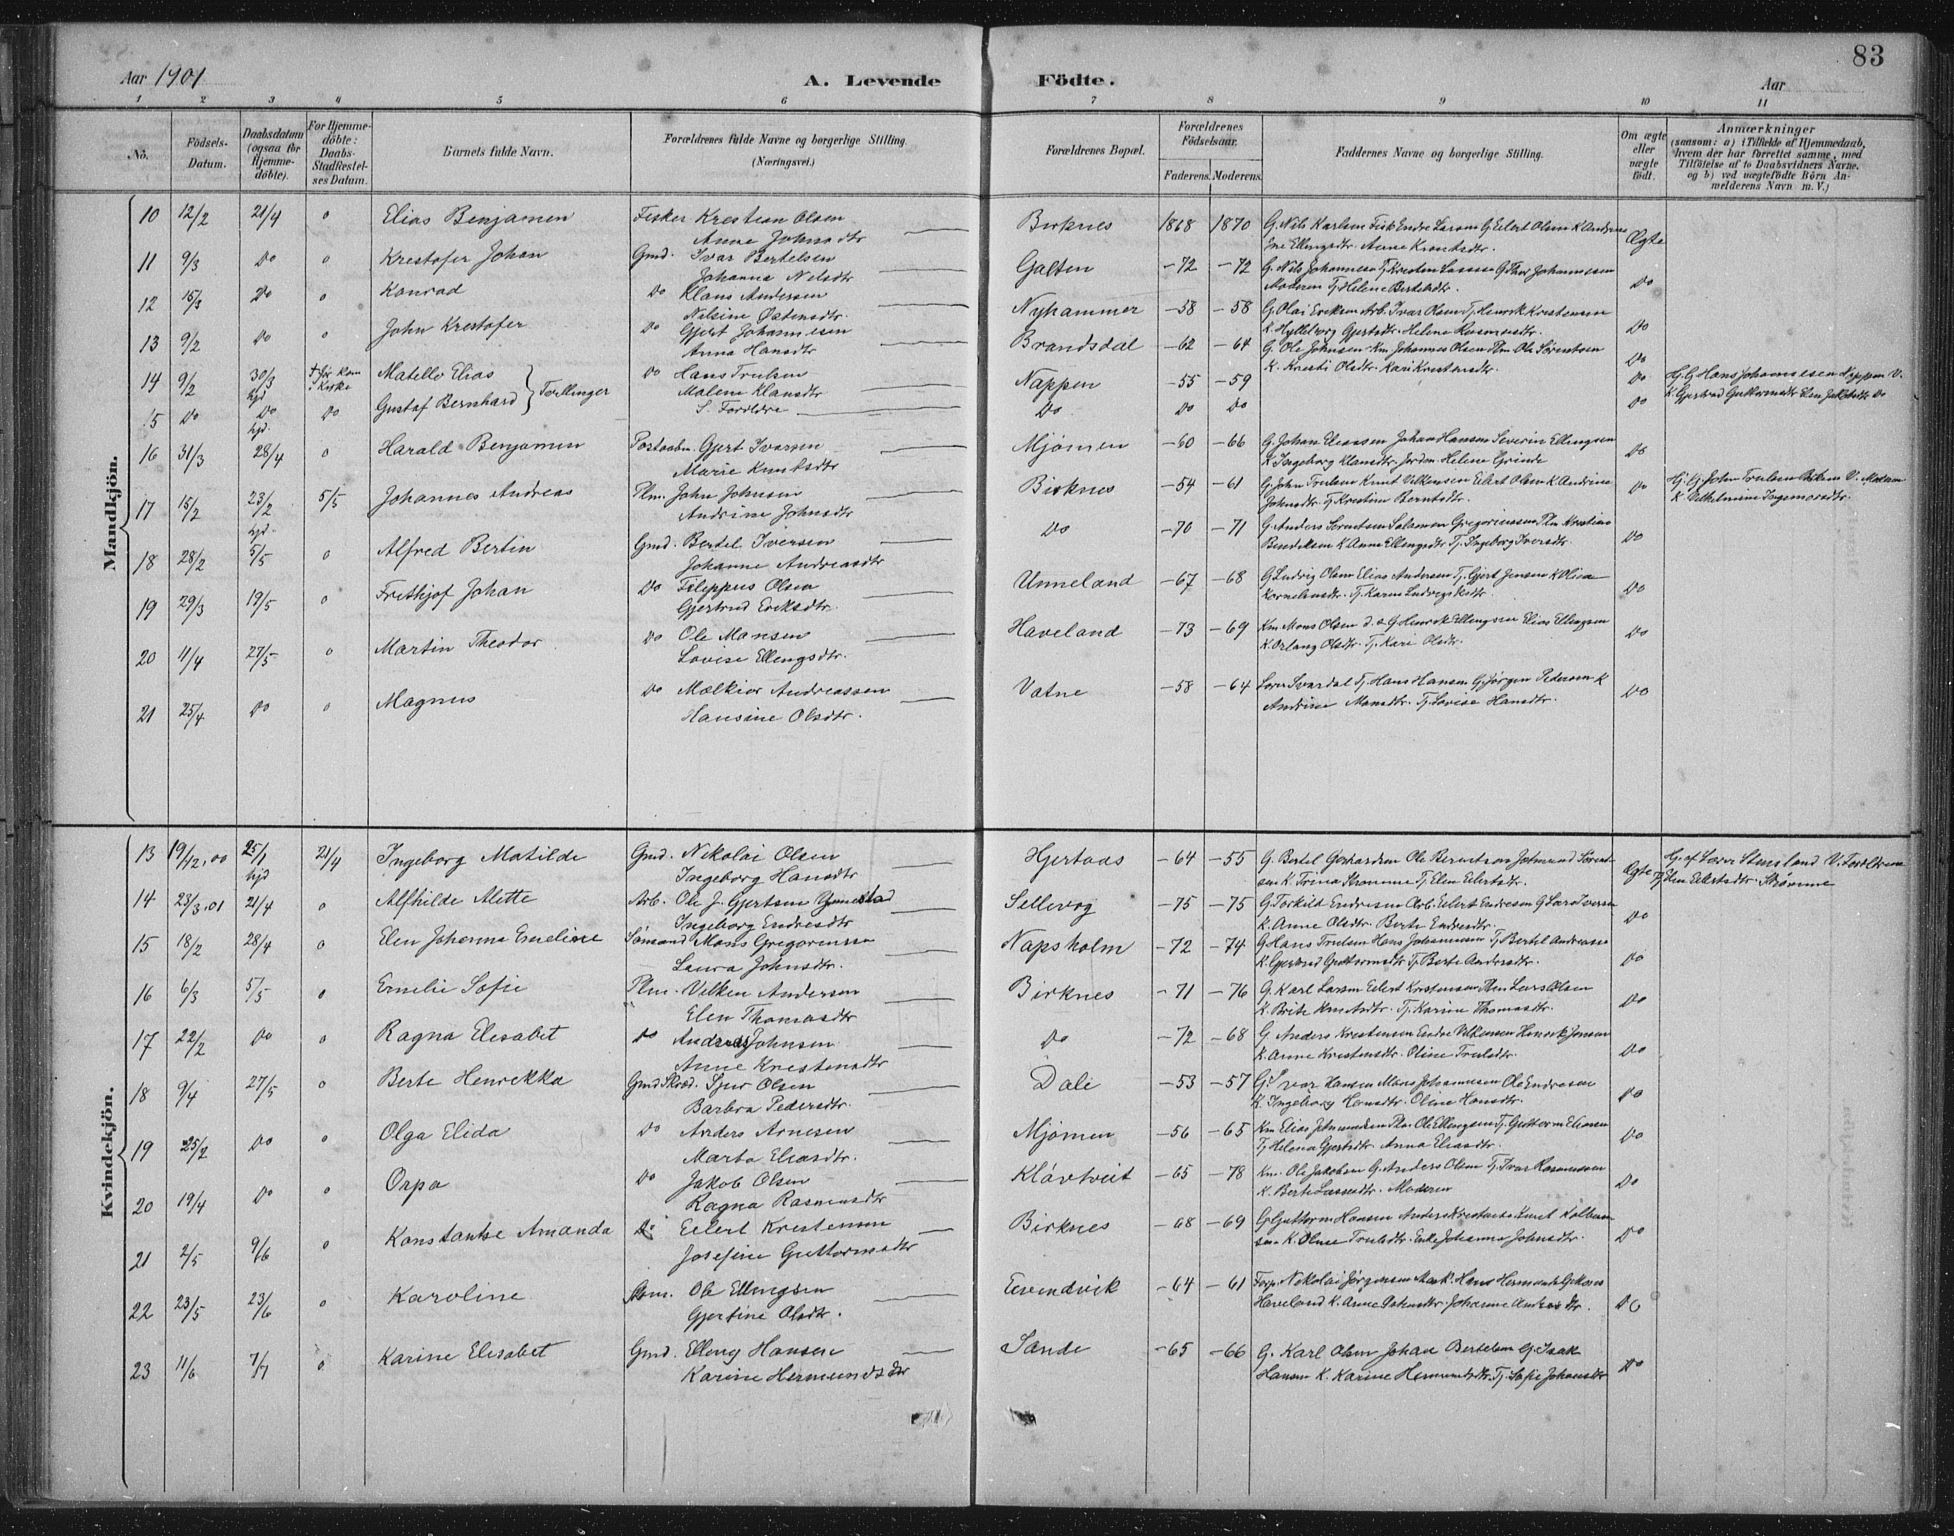 83
Aar 1901 A. Levende Födte. Aar
1 2 3 4 5 6 7 8 9 10 11
No. Födsels-Datum. Daabsdatum (ogsaa for Hjemmedöbte). For Hjemmedöbte: Daabs-Stadfæstelses Datum. Barnets fulde Navn. Forældrenes fulde Navne og borgerlige Stilling. (Næringsvei.) Forældrenes Bopæl. Forældrenes Födselsaar. Faderens. Moderens. Faddernes Navne og borgerlige Stilling. Om ægte eller uægte födt. Anmærkninger (saasom: a) i Tilfælde af Hjemmedaab, hvem der har forrettet samme, med Tilföielse af to Daabsvidners Navne, og b) ved uægtefödte Börn Anmelderens Navn m. V.)
Mandkjön.
10 12/2 21/4 o Elias Benjamen Fisker Krestian Olsen Birknes 1868 1870 G. Nils Karlsen Fisk Endre Larsen G Eilert Olsen K Andrine Ægte
Anne Johnsdtr Ellengsdtr. Anne Knutsdtr.
11 9/3 Do o Krestofer Johan Gmd. Ivar Bertelsen Galten -72 -72 G. Nils Johannesen Tj Kresten Larsen G Thor Johannesen Do
Johanna Nilsdtr Moderen Tj Helene Bertelsdtr.
12 15/3 Do o Konrad Do Klaus Andersen Nyhammer -58 -58 G. Olai Eriksen Arb. Ivar Olsen Tj Henrik Krestensen Do
Nilsine Østensdtr K. Hylleborg Gjertsdtr. Helene Rasmusdtr.
13 9/2 Do o John Krestofer Do Gjert Johannesen Brandsdal -62 -64 G. Ole Johnsen Km Johannes Olsen Plm Ole Sörensen Do
Anna Hansdtr K. Kresti Olsdtr. Kari Krestensdtr.
14 9/2 30/3 hjd † för kom t. Kirke Matello Elias } Tvillinger Do Hans Trulsen Nappen -55 -59 Do Hj. G Hans Johannesen Nappen V.
Malene Klausdtr K. Gjertrud Guttormsdtr Elen Jakobsdtr Do
15 Do Do hjd. Do Gustaf Bernhard S. Foreldre Do Do Do Do
16 31/3 28/4 o Harald Benjamin Postaabn. Gjert Ivarsen Mjömen -60 -66 G. Johan Eliassen Johan Hansen Severin Ellengsen Do
Marie Knutsdtr K. Ingeborg Klausdtr. Jordm. Helene Grinde
17 15/2 23/2 hjd. 5/5 Johannes Andreas Plm. John Johnsen Birknes -54 -61 G. John Trulsen Knut Vilkensen Eilert Olsen K Andrine Do Hj. G. John Trulsen Birknes V. Moderen
Andrine Johnsdtr Johnsdtr. Tj Krestine Berntsdtr. K Vilhelmine Ingemarsdtr.
18 28/2 5/5 o Alfred Bertin Gmd. Bertel Iversen Do -70 -71 G. Anders Sörensen Salamon Gregoriussen Plm Kristian Do
Johanne Andreasdtr Bendiksen K Anne Ellengsdtr Tj. Ingeborg Iversdtr.
19 29/3 19/5 o Frithjof Johan Do Filippus Olsen Unneland -67 -68 G Ludvig Olsen Elias Andersen Tj. Gjert Jensen K Olina Do
Gjertrud Eriksdtr. Korneliusdtr. Tj. Karen Ludvigsdtr.
20 11/4 27/5 o Martin Theodor Do Ole Monsen Haveland -73 -69 Km Mons Olsen d. e. G Henrik Ellengsen Elias Ellengsen Do
Lovise Ellengsdtr. K. Orlaug Olsdtr. Tj. Kari Olsdtr.
21 25/4 Do o Magnus Do Melkior Andreassen Vatne -58 -64 Lærer Svardal Tj Hans Hansen G. Jørgen Pedersen K Do
Hansine Olsdtr. Andrine Monsdtr. Tj Lovise Hansdtr.
Kvindekjön.
13 19/12.00 25/1 hjd 21/4 Ingeborg Matilde Gmd. Nikolai Olsen Hjertaas -64 -55 G. Bertel Gerhardsen Ole Berntsen Jetmund Sören- Ægte Hj. af Lærer Stensland V. Foreldrene
Ingeborg Hansdtr sen K. Trina Strömme Tj Elen Eilertsdtr. Tj Elen Eilertsdtr. Strömme
14 23/3.01 21/4 o Alfhilde Alette Arb. Ole J. Gjertsen Ynnestad Sellevog -75 -75 G Torkild Endresen Arb. Eilert Endresen G Lars Iversen Do
Ingeborg Endresdtr K. Anne Olsdtr. Berte Endresdtr.
15 18/2 28/4 o Elen Johanna Emeline Sömand Mons Gregoriussen Napsholm -72 -74 G Hans Trulsen Hans Johannesen Tj Bertel Andreassen Do
Laura Johnsdtr. K. Gjertrud Guttormsdtr Tj Berte Andersdtr.
16 6/3 5/5 o Emelie Sofie Plm. Vilken Andersen Birknes -71 -76 G. Karl Larsen Eilert Krestensen Plm Lars Olsen Do
Elen Thomasdtr K. Brite Knutsdtr. Tj. Karine Thomasdtr.
17 22/2 Do o Ragna Elesabet Do Anders Johnsen Do -72 -68 G Anders Krestensen Endre Vilkensen Henrik Jensen Do
Anne Krestensdtr K. Anne Krestensdtr. Oline Trulsdtr.
18 9/4 27/5 o Berte Henrekka Gmd Skræd. Sjur Olsen Dale -53 -57 G. Ivar Hansen Mons Johannesen Ole Endresen Do
Barbra Pedersdtr. K. Ingeborg Hansdtr. Oline Hansdtr.
19 25/2 Do o Olga Elida Do Anders Arnesen Mjömen -56 -65 Km Elias Johannesen Plm Ole Ellengsen Tj. Guttorm Eliassen Do
Marta Eliasdtr. Tj Helena Gjertsdtr. Anna Eliasdtr.
20 19/4 Do o Orpa Do Jakob Olsen Klávtveit -65 -78 Km. Ole Jakobsen G. Anders Olsen Tj. Ivar Rasmussen Do
Ragna Rasmusdtr K. Berte Lassesdtr. Moderen
21 2/5 9/6 o Konstanse Amanda Do Eilert Krestensen Birknes -68 -69 G. Guttorm Hansen Anders Krestensen Do
Josefine Guttormsdtr sen K. Oline Trulsdtr. Enke Johanna Johnsdtr.
22 23/5 23/6 o Karoline Skom. Ole Ellengsen Eivindvik -64 -61 Forp. Nikolai Jörgensen Do
Gjertine Olsdtr. Haveland K. Anne Johanne Andersdtr.
23 11/6 7/7 o Karine Elesabet Gmd. Elleng Hansen Sande -65 -66 G. Karl Olsen Johan Bertelsen G. Isak Do
Karine Hermundsdtr Hansen K. Karine Hermundsdtr. Tj. Sofie Johansdtr